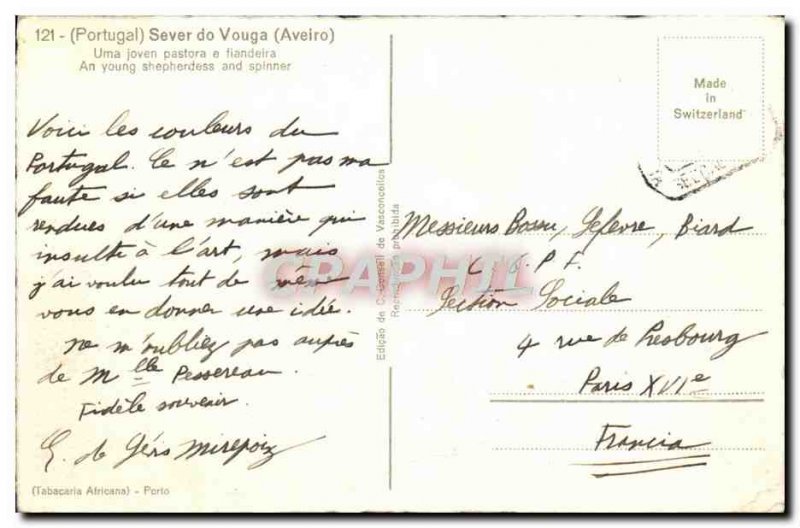 121 - (Portugal) Sever do Vouga (Aveiro)
Uma joven pastora e fiandeira
An young shepherdess and spinner
Voici les couleurs du
Portugal. Ce n'est pas ma
faute si elles sont
rendues d'une manière qui
insulte à l'art, mais
j'ai voulu tout de même
vous en donner une idée.
Ne m'oubliez pas auprès
de Mlle Pessereau.
Fidèle souvenir.
de Mirepoix
(Tabacaria Africana) - Porto
Edição de C. Vasconcellos
Reprodução prohibida
Made
in
Switzerland
Messieurs Lefevre, Biard
C. G. P. F.
Section Sociale
4 rue de Presbourg
Paris XVIe
Francia
CPAPHIL